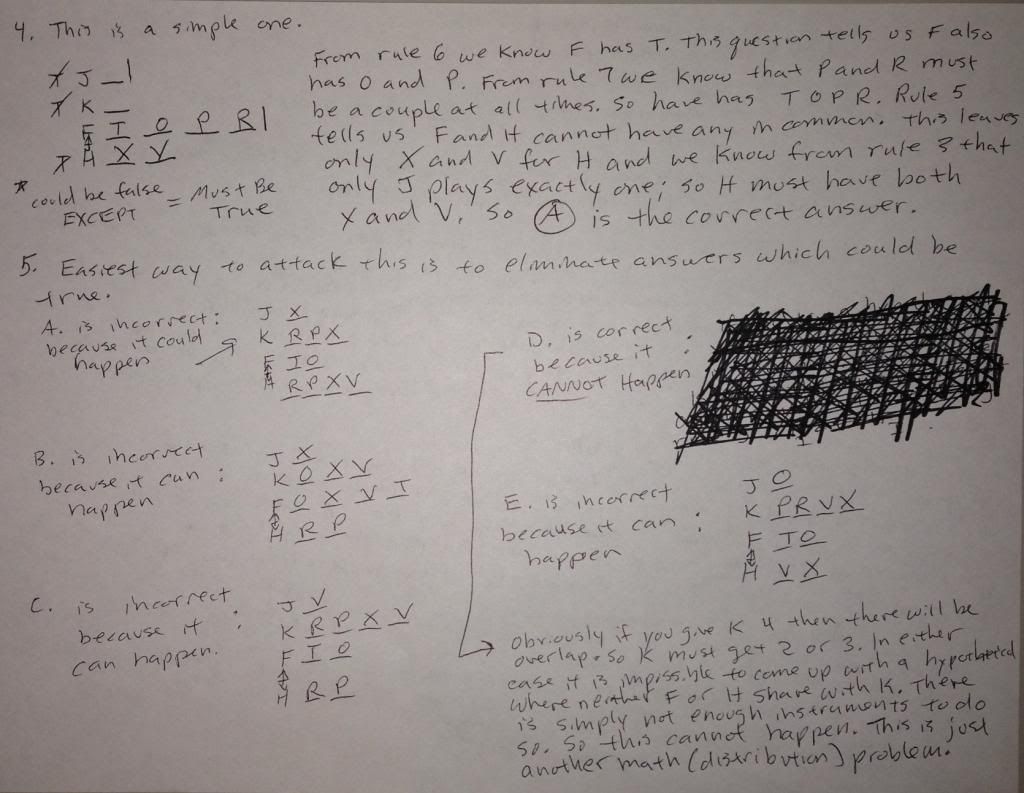 4. This is a simple one.
* J _ 1
* K _
F T O P R |
* H X V
* could be false EXCEPT = Must Be True
From rule 6 we know F has T. This question tells us F also
has O and P. From rule 7 we know that P and R must
be a couple at all times. So have has T O P R. Rule 5
tells us F and H cannot have any in common. This leaves
only X and V for H and we know from rule 3 that
only J plays exactly one; so H must have both
X and V. So (A) is the correct answer.
5. Easiest way to attack this is to eliminate answers which could be
true.
A. is incorrect:
because it could
happen
J X
K R P X
F T O
H R P X V
B. is incorrect
because it can :
happen
J X
K O X V
F O X V T
H R P
C. is incorrect
because it :
can happen.
J V
K R P X V
F T O
H R P
D. is correct
because it :
CANNOT Happen
E. is incorrect
because it can :
happen
J O
K P R V X
F T O
H V X
Obviously if you give K 4 then there will be
overlap. So K must get 2 or 3. In either
case it is impossible to come up with a hypothetical
where neither F or H share with K. There
is simply not enough instruments to do
so. So this cannot happen. This is just
another math (distribution) problem.